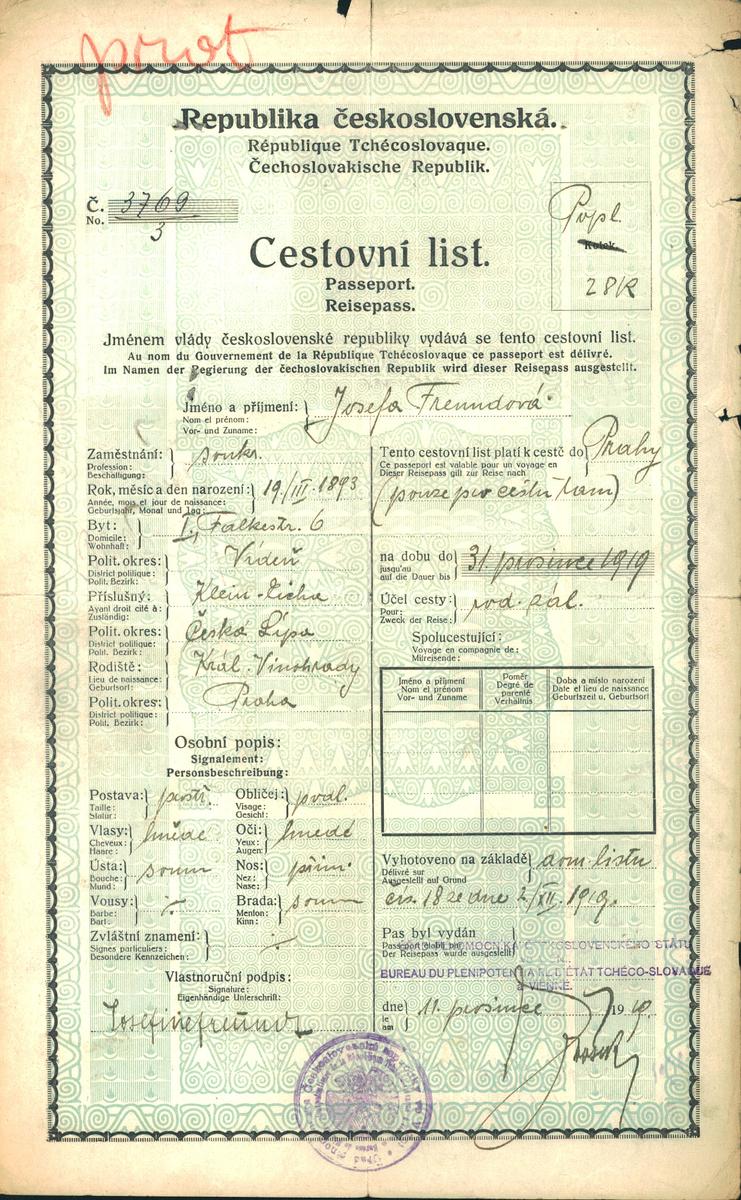 Republika československá.
République Tchécoslovaque.
Čechoslovakische Republik.
Č. 3769
No. 3
Popl.
Kolek
28K
Cestovní list.
Passeport.
Reisepass.
Jménem vlády československé republiky vydává se tento cestovní list.
Au nom du Gouvernement de la République Tchécoslovaque ce passeport est délivré.
Im Namen der Regierung der čechoslovakischen Republik wird dieser Reisepass ausgestellt.
Jméno a příjmení: Josefa Freundová
Nom el prénom:
Vor- und Zuname:
Zaměstnání: soukr.
Profession:
Beschäftigung:
Rok, měsíc a den narození: 19/III. 1893
Année, mois, el jour de naissance:
Geburtsjahr, Monat und Tag:
Byt: I., Falkestr. 6
Domicile:
Wohnhaft:
Polit. okres: Vídeň
District politique:
Polit. Bezirk:
Příslušný: Klein-Eicha
Ayant droit cité à:
Zuständig:
Polit. okres: Česká Lípa
District politique:
Polit. Bezirk:
Rodiště: Král. Vinohrady
Lieu de naissance:
Geburtsort:
Polit. okres: Praha
District politique:
Polit. Bezirk:
Osobní popis:
Signalement:
Personsbeschreibung:
Postava: prostř. Obličej: podl.
Taille: Visage:
Statur: Gesicht:
Vlasy: hnědé Oči: hnědé
Cheveux: Yeux:
Haare: Augen:
Ústa: soum Nos: přím.
Bouche: Nez:
Mund: Nase:
Vousy: ÷ Brada: soum
Barbe: Menton:
Bart: Kinn:
Zvláštní znamení: ÷
Signes particuliers:
Besondere Kennzeichen:
Vlastnoruční podpis:
Signature:
Eigenhändige Unterschrift:
Josefine Freund
Tento cestovní list platí k cestě do Prahy
Ce passeport est valable pour un voyage en
Dieser Reisepass gilt zur Reise nach
(pouze pro cestu tam)
na dobu do 31 prosince 1919
jusqu'au
auf die Dauer bis
Účel cesty: rod. zál.
Pour:
Zweck der Reise:
Spolucestující:
Voyage en compagnie de:
Mitreisende:
Jméno a příjmení Poměr Doba a místo narození
Nom el prénom Degré de parenté Date el lieu de naissance
Vor- und Zuname Verhältnis Geburtszeit u. Geburtsort
Vyhotoveno na základě dom. listu
Délivré sur
Ausgestellt auf Grund
čís. 18 ze dne 2/XII. 1919.
Pas byl vydán
Passeport établi par
Der Reisepass wurde ausgestellt
ČESKOSLOVENSKÉHO STÁTU
BUREAU DU PLENIPOTENTIAIRE DE L'ÉTAT TCHÉCO-SLOVAQUE
à VIENNE.
dne 11. prosince 1919.
le
am